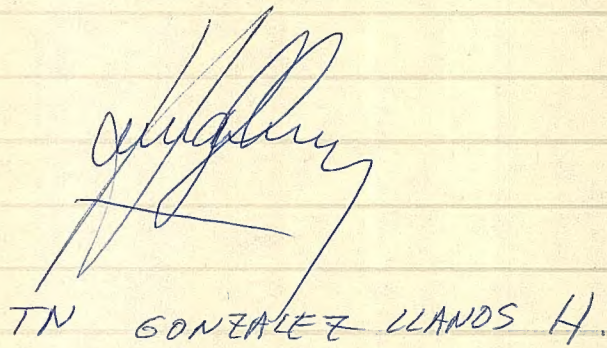 TN GONZALEZ LLANOS H.